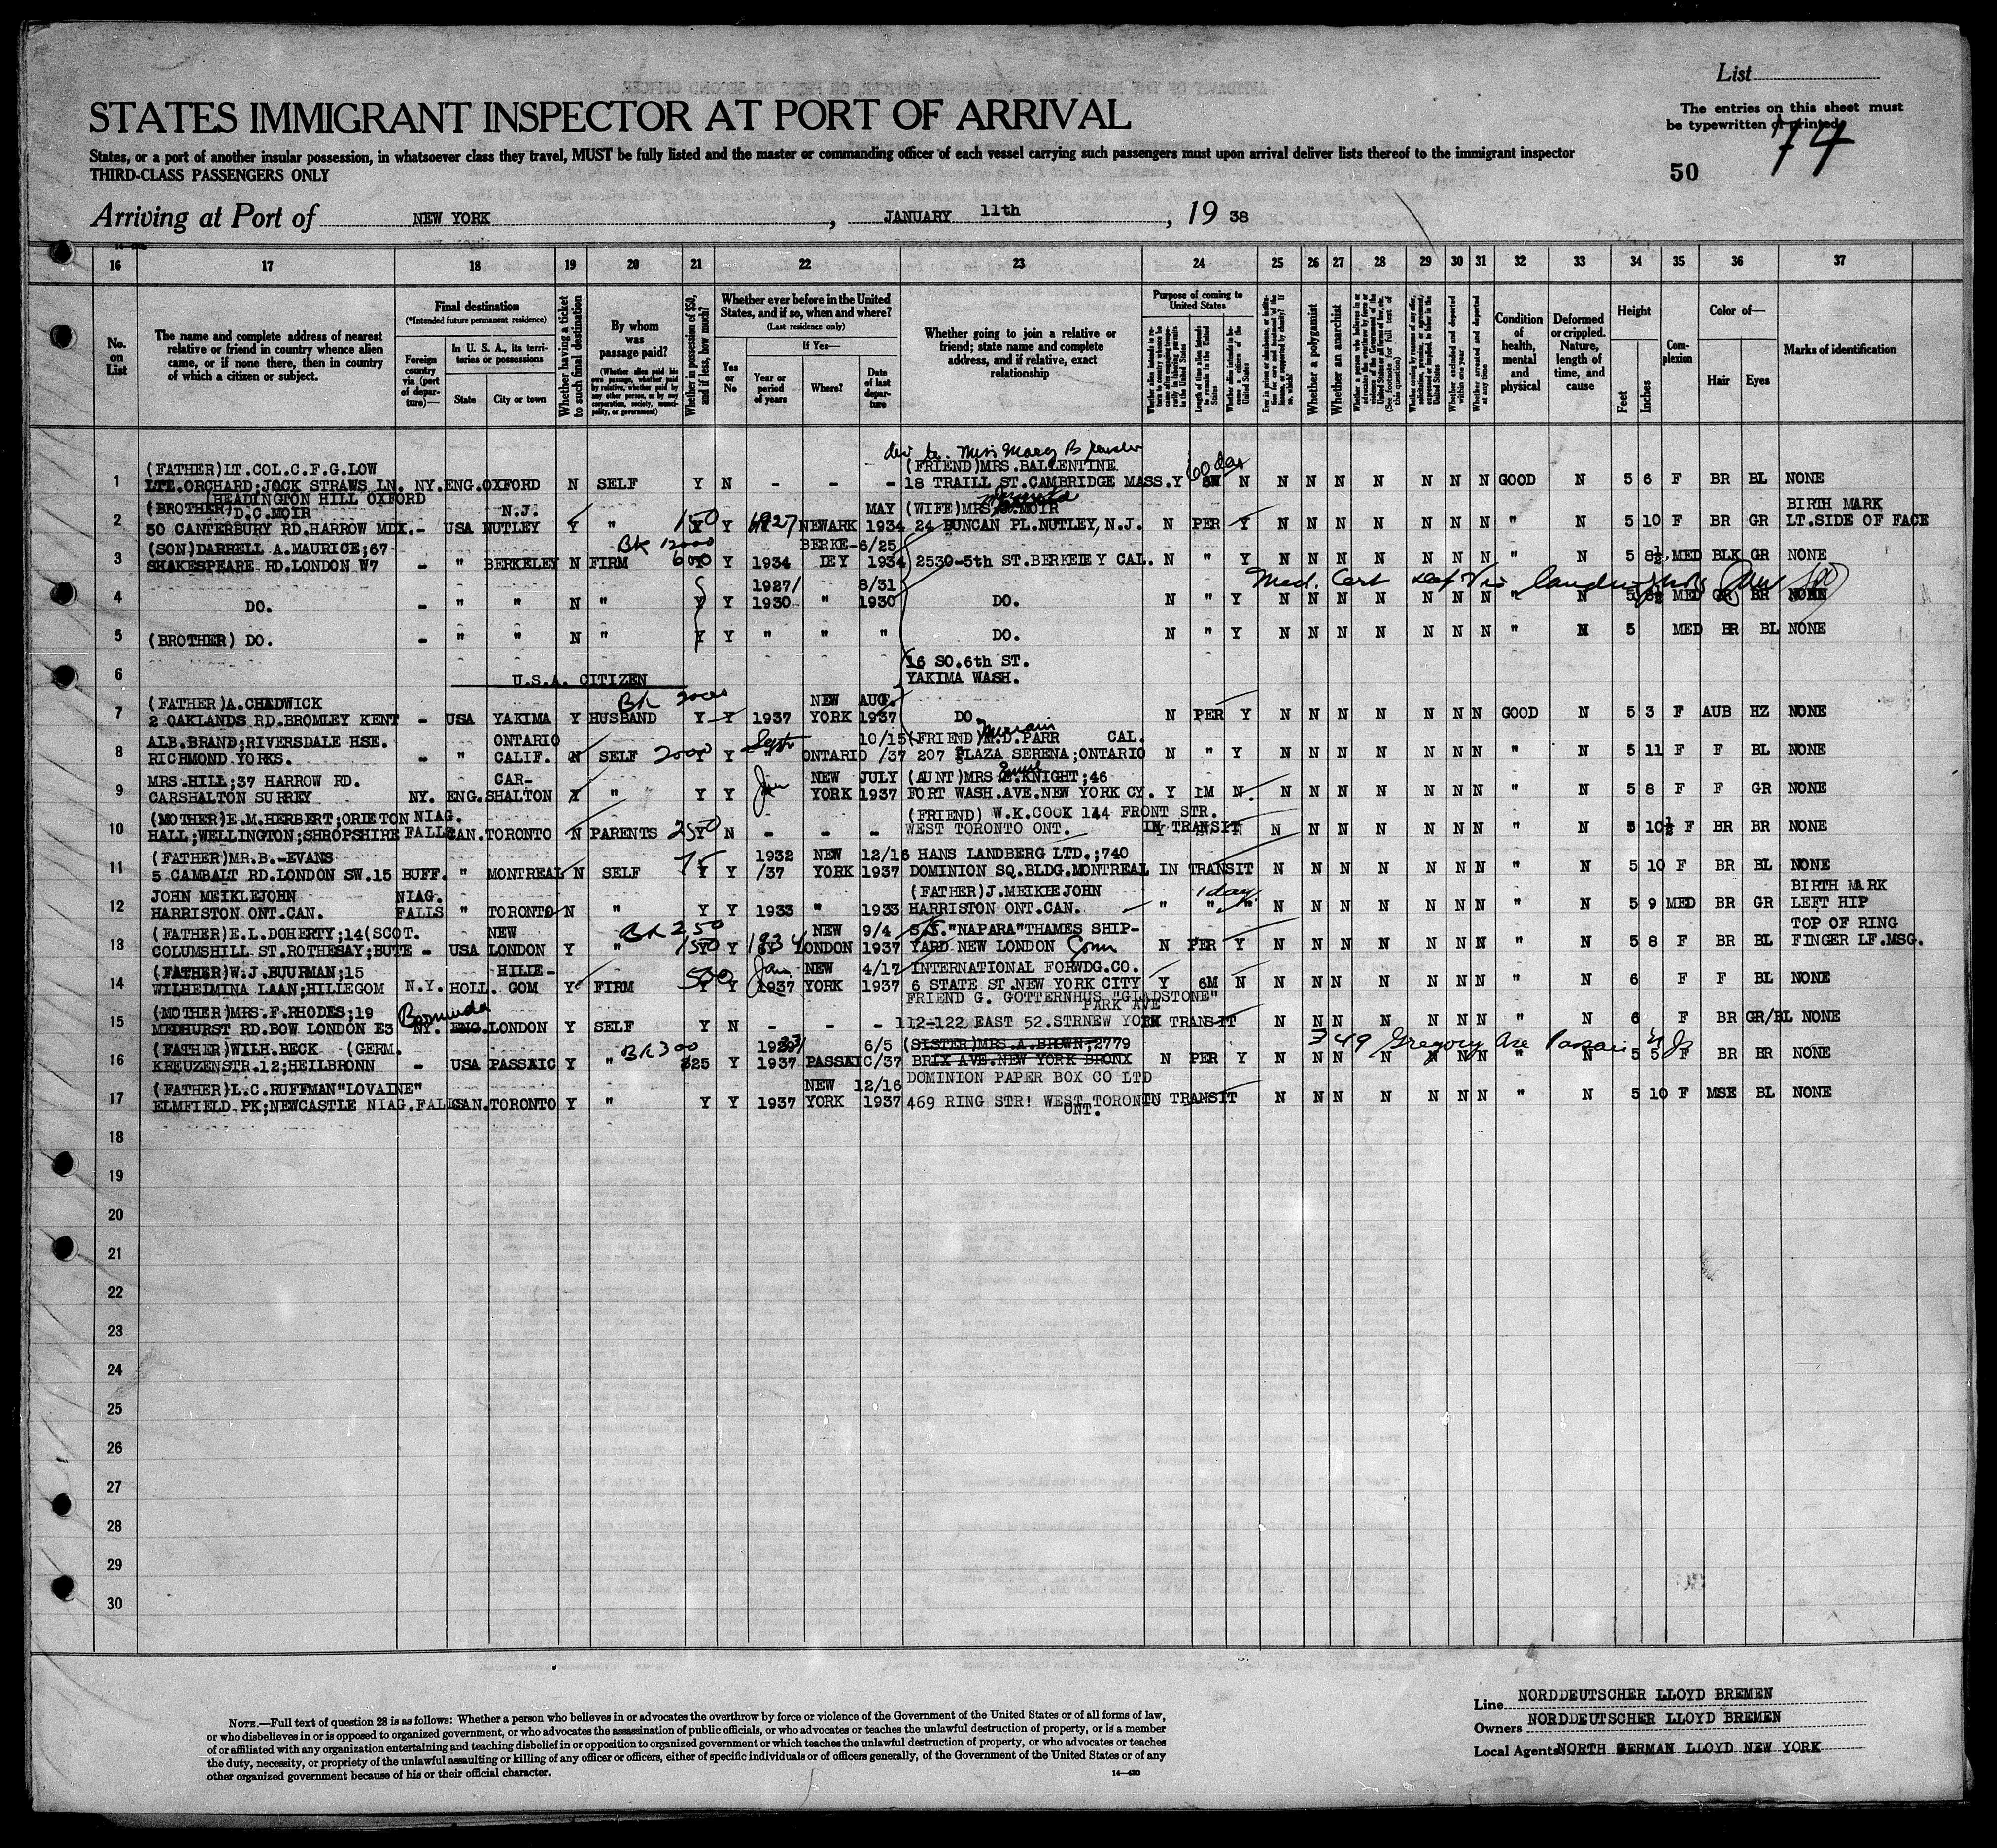 List
STATES IMMIGRANT INSPECTOR AT PORT OF ARRIVAL
The entries on this sheet must
be typewritten or printed.
74
States, or a port of another insular possession, in whatsoever class they travel, MUST be fully listed and the master or commanding officer of each vessel carrying such passengers must upon arrival deliver lists thereof to the immigrant inspector
THIRD-CLASS PASSENGERS ONLY
50
Arriving at Port of NEW YORK, JANUARY 11th, 19 38
16 17 18 19 20 21 22 23 24 25 26 27 28 29 30 31 32 33 34 35 36 37
No. on List
The name and complete address of nearest relative or friend in country whence alien came, or if none there, then in country of which a citizen or subject.
Final destination
(*Intended future permanent residence)
Foreign country via (port of departure)—
In U. S. A., its territories or possessions
State
City or town
Whether having a ticket to such final destination
By whom was passage paid?
(Whether alien paid his own passage, whether paid by relative, whether paid by any other person, or by any corporation, society, municipality, or government)
Whether in possession of $50, and if less, how much?
Whether ever before in the United States, and if so, when and where?
(Last residence only)
Yes or No
If Yes—
Year or period of years
Where?
Date of last departure
Whether going to join a relative or friend; state name and complete address, and if relative, exact relationship
Purpose of coming to United States
Length of time alien intends to remain in the United States
Whether a polygamist
Whether an anarchist
Condition of health, mental and physical
Deformed or crippled. Nature, length of time, and cause
Height
Feet
Inches
Complexion
Color of—
Hair
Eyes
Marks of identification
Miss Mary B
1 (FATHER)LT.COL.C.F.G.LOW (FRIEND)MRS.BALLENTINE 60 days
LTL.ORCHARD;JOCK STRAWS LN. NY. ENG. OXFORD N SELF Y N - - - 18 TRAILL ST.CAMBRIDGE MASS. Y N N N N N N N N GOOD N 5 6 F BR BL NONE
(HEADINGTON HILL OXFORD
2 (BROTHER)D.C.MOIR N.J. MAY (WIFE)MRS. MOIR BIRTH MARK
50 CANTERBURY RD.HARROW MDX. - USA NUTLEY Y " 150 Y Y 1927 NEWARK 1934 24 DUNCAN PL.NUTLEY, N.J. N PER Y N N N N N N N " N 5 10 F BR GR LT.SIDE OF FACE
3 (SON)DARRELL A.MAURICE;67 BK 12000 BERKE- 6/25
SHAKESPEARE RD.LONDON W7 - " BERKELEY N FIRM 600 Y Y 1934 LEY 1934 2530-5th ST.BERKELEY CAL. N " Y N N N N N N N " N 5 8½ MED BLK GR NONE
1927/ 8/31 Med. Cert
4 DO. - " " N " Y Y 1930 " 1930 DO. N " Y N N N N N N N " N 5 8½ MED GR BR NONE
5 (BROTHER) DO. - " " N " Y Y " " " DO. N " Y N N N N N N N " N 5 MED BR BL NONE
6 U.S.A. CITIZEN 16 SO.6th ST.
YAKIMA WASH.
7 (FATHER)A.CHADWICK BK 2000 NEW AUG.
2 OAKLANDS RD.BROMLEY KENT - USA YAKIMA Y HUSBAND Y Y 1937 YORK 1937 DO. N PER Y N N N N N N N GOOD N 5 3 F AUB HZ NONE
8 ALB.BRAND;RIVERSDALE HSE. ONTARIO Sept 10/15 (FRIEND)M.D.PARR CAL.
RICHMOND YORKS. - " CALIF. N SELF 2000 Y Y " ONTARIO /37 207 PLAZA SERENA;ONTARIO N " Y N N N N N N N " N 5 11 F F BL NONE
9 MRS.HILL;37 HARROW RD. CAR- Jan NEW JULY (AUNT)MRS E.KNIGHT;46
CARSHALTON SURREY NY. ENG. SHALTON Y " Y Y YORK 1937 FORT WASH.AVE.NEW YORK CY. Y 1M N N N N N N N N " N 5 8 F F GR NONE
10 (MOTHER)E.M.HERBERT;ORLETON NIAG. (FRIEND) W.K.COOK 144 FRONT STR.
HALL;WELLINGTON;SHROPSHIRE FALLS CAN. TORONTO N PARENTS 250 Y N - - - WEST TORONTO ONT. IN TRANSIT N N N N N N N " N 5 10½ F BR BR NONE
11 (FATHER)MR.B.-EVANS 75 1932 NEW 12/16 HANS LANDBERG LTD.;740
5 CAMBALT RD.LONDON SW.15 BUFF. " MONTREAL N SELF Y Y /37 YORK 1937 DOMINION SQ.BLDG.MONTREAL IN TRANSIT N N N N N N N " N 5 10 F BR BL NONE
12 JOHN MEIKLEJOHN NIAG. (FATHER)J.MEIKLEJOHN 1 day BIRTH MARK
HARRISTON ONT.CAN. FALLS " TORONTO N " Y Y 1933 " 1933 HARRISTON ONT.CAN. " " " N N N N N N N " N 5 9 MED BR GR LEFT HIP
13 (FATHER)E.L.DOHERTY;14(SCOT. NEW BK 250 NEW 9/4 S/S."NAPARA"THAMES SHIP- TOP OF RING
COLUMSHILL ST.ROTHESAY;BUTE - USA LONDON Y " 150 Y Y 1934 LONDON 1937 YARD NEW LONDON Conn N PER Y N N N N N N N " N 5 8 F BR BL FINGER LF.MSG.
14 (FATHER)W.J.BUURMAN;15 HILLE- Jan NEW 4/17 INTERNATIONAL FORWDG.CO.
WILHELMINA LAAN;HILLEGOM N.Y. HOLL. GOM Y FIRM 500 Y Y 1937 YORK 1937 6 STATE ST.NEW YORK CITY Y 6M N N N N N N N N " N 6 F F BL NONE
15 (MOTHER)MRS.F.RHODES;19 Bermuda FRIEND G. GOTTERNHUS "GLADSTONE" PARK AVE
MEDHURST RD.BOW LONDON E3 NY. ENG. LONDON Y SELF Y N - - - 112-122 EAST 52.STRNEW YORK IN TRANSIT N N N N N N N " N 6 F BR GR/BL NONE
16 (FATHER)WILH.BECK (GERM. BK 300 6/5 (SISTER)MRS.A.BROWN;2779 349 Gregory Ave Passaic N J
KREUZENSTR.12;HEILBRONN - USA PASSAIC Y " $25 Y 1937 PASSAIC /37 BRIX AVE.NEW YORK BRONX N PER Y N N N N N N N " N 5 5 F BR BR NONE
17 (FATHER)L.C.RUFFMAN"LOVAINE" NEW 12/16 DOMINION PAPER BOX CO LTD
ELMFIELD PK;NEWCASTLE NIAG.FALLS CAN. TORONTO Y " Y Y 1937 YORK 1937 469 KING STR! WEST TORONTO ONT. IN TRANSIT N N N N N N N " N 5 10 F MSE BL NONE
18
19
20
21
22
23
24
25
26
27
28
29
30
NOTE.—Full text of question 28 is as follows: Whether a person who believes in or advocates the overthrow by force or violence of the Government of the United States or of all forms of law,
or who disbelieves in or is opposed to organized government, or who advocates the assassination of public officials, or who advocates or teaches the unlawful destruction of property, or is a member
of or affiliated with any organization entertaining and teaching disbelief in or opposition to organized government or which teaches the unlawful destruction of property, or who advocates or teaches
the duty, necessity, or propriety of the unlawful assaulting or killing of any officer or officers, either of specific individuals or of officers generally, of the Government of the United States or of any
other organized government because of his or their official character.
14—430
Line NORDDEUTSCHER LLOYD BREMEN
Owners NORDDEUTSCHER LLOYD BREMEN
Local Agents NORTH GERMAN LLOYD NEW YORK